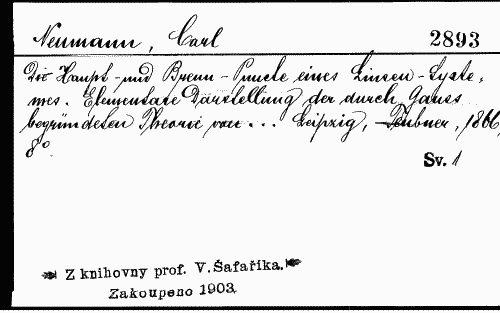 Neumann, Carl 2893
Die Haupt- und Brenn-Puncte eines Linsen-Syste-
mes. Elementare Darstellung der durch Gauss
begründeten Theorie von... Leipzig, Teubner, 1866,
8°.
Sv. 1
Z knihovny prof. V. Šafaříka.
Zakoupeno 1903.